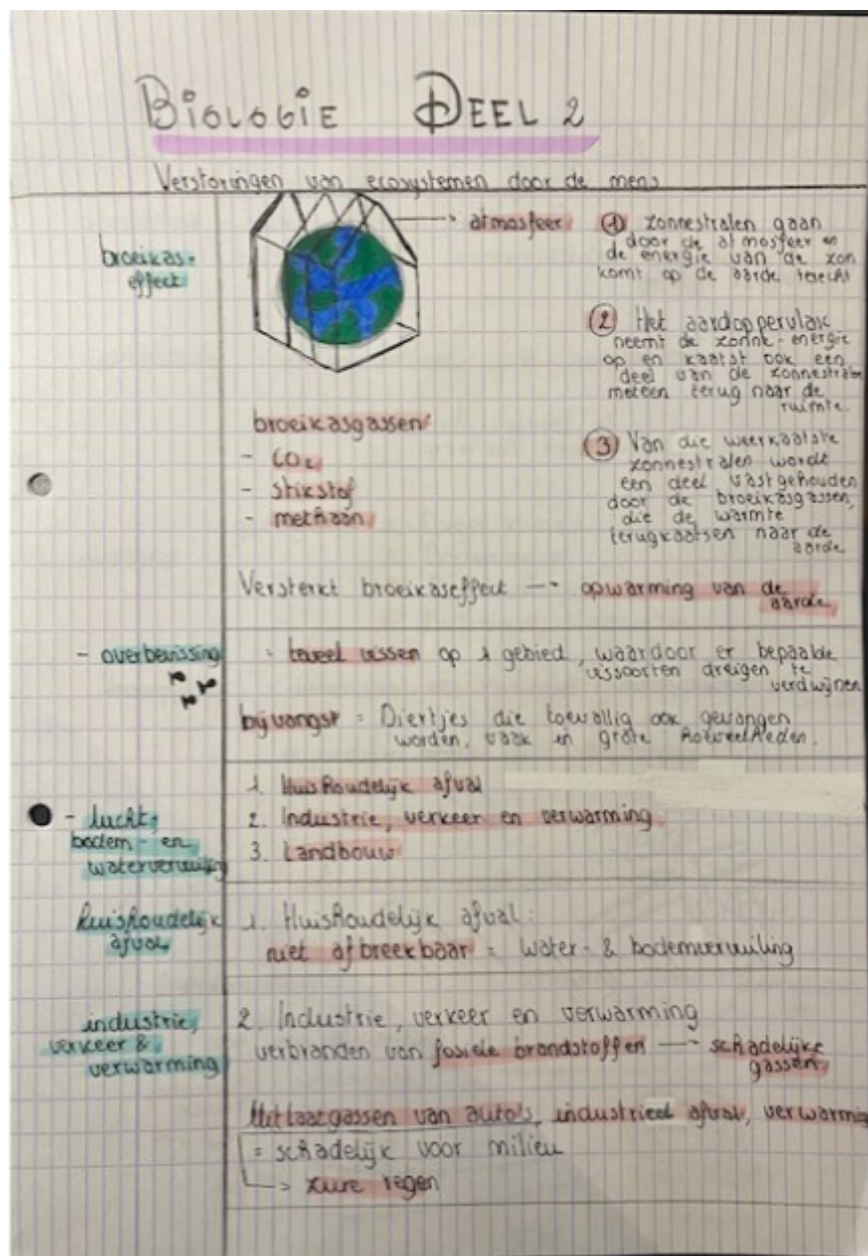 BIOLOGIE DEEL 2
Verstoringen van ecosystemen door de mens
broeikas-
effect
atmosfeer
① zonnestralen gaan
door de atmosfeer en
de energie van de zon
komt op de aarde terecht
② Het aardoppervlak
neemt de zonne-energie
op en kaatst ook een
deel van de zonnestralen
meteen terug naar de
ruimte.
broeikasgassen:
- CO₂
- stikstof
- methaan
③ Van die weerkaatste
zonnestralen wordt
een deel vastgehouden
door de broeikasgassen,
die de warmte
terugkaatsen naar de
aarde
Versterkt broeikaseffect → opwarming van de
aarde
- overbevissing
= teveel vissen op 1 gebied, waardoor er bepaalde
vissoorten dreigen te
verdwijnen
bijvangst = Diertjes die toevallig ook gevangen
worden, vaak in grote hoeveelheden.
- lucht-,
bodem- en
watervervuiling
1. Huishoudelijk afval
2. Industrie, verkeer en verwarming
3. Landbouw
huishoudelijk
afval
1. Huishoudelijk afval:
niet afbreekbaar = water- & bodemvervuiling
industrie,
verkeer &
verwarming
2. Industrie, verkeer en verwarming
verbranden van fosiele brandstoffen → schadelijke
gassen
Uitlaatgassen van auto's, industrieel afval, verwarming
= schadelijk voor milieu
→ zure regen